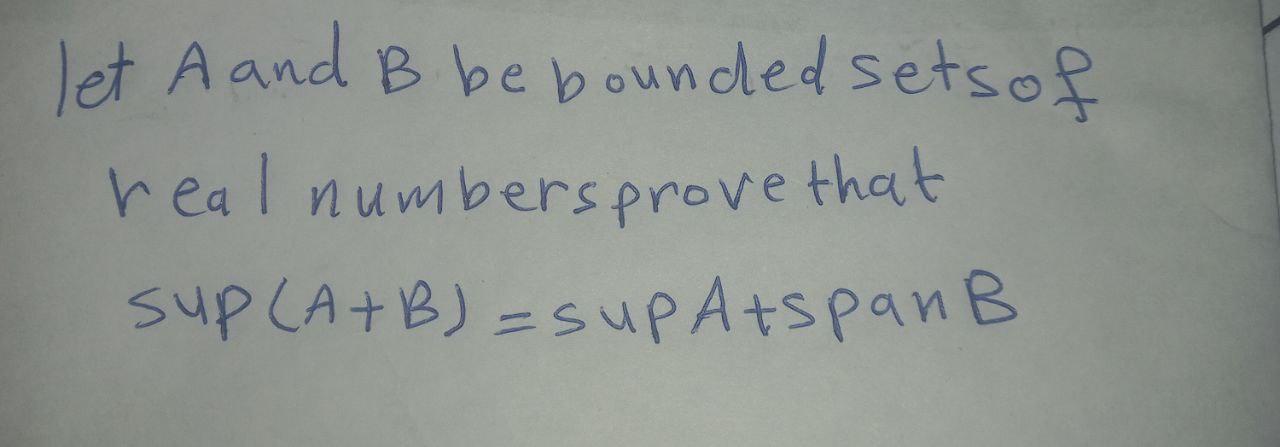 let A and B be bounded sets of
real numbers prove that
sup(A+B) = sup A + span B